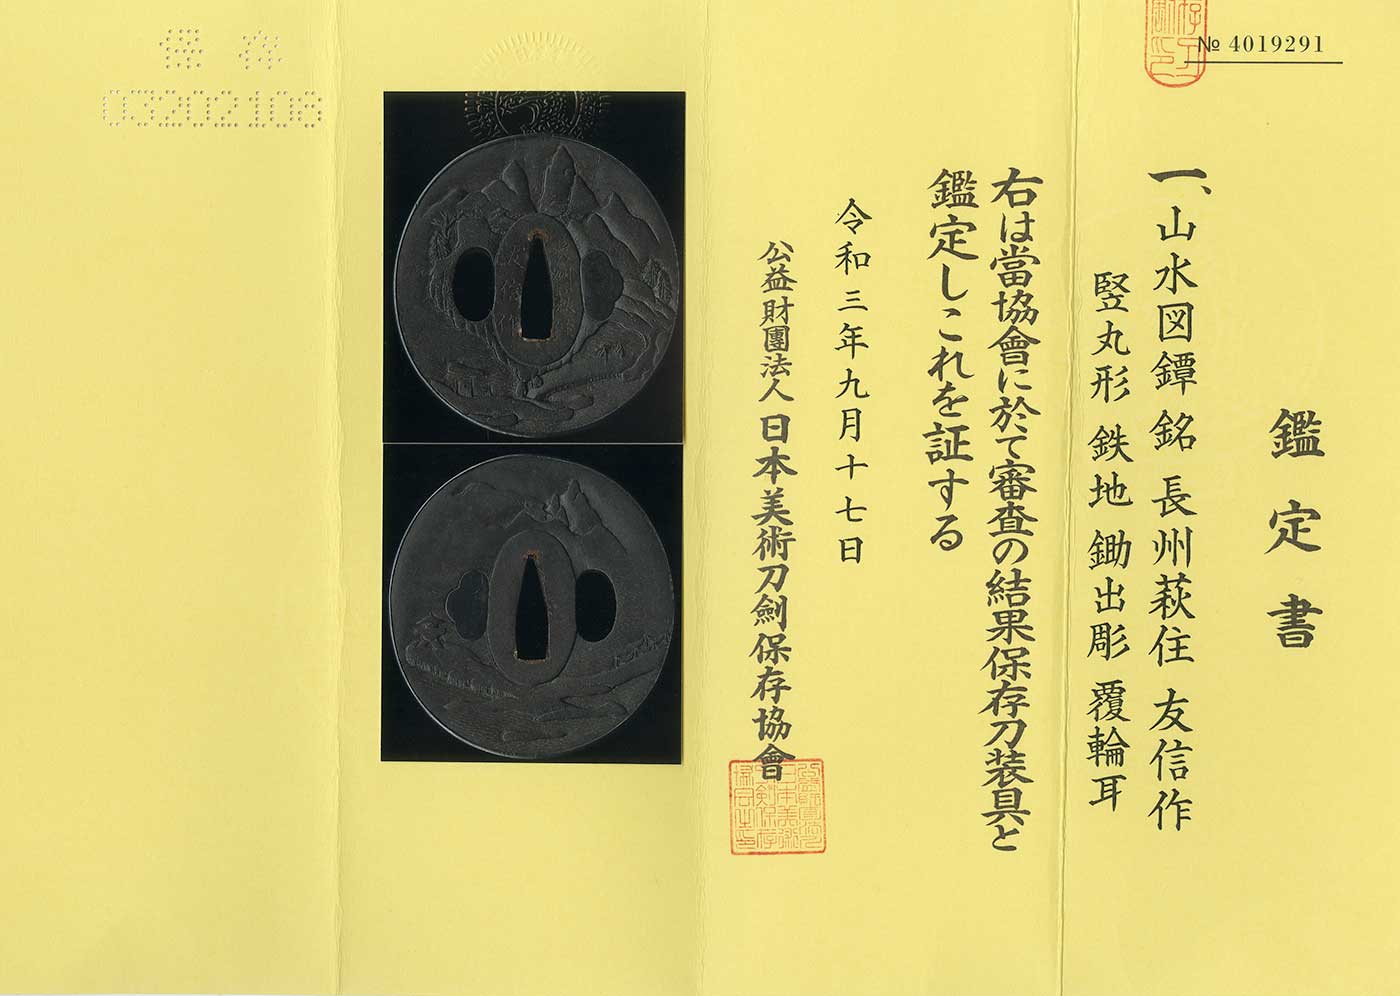 № 4019291
鑑定書
一、山水図鐔 銘 長州萩住 友信作
竪丸形 鉄地 鋤出彫 覆輪耳
右は當協會に於て審査の結果保存刀装具と
鑑定しこれを証する
令和三年九月十七日
公益財團法人 日本美術刀劍保存協會
保存
03202108